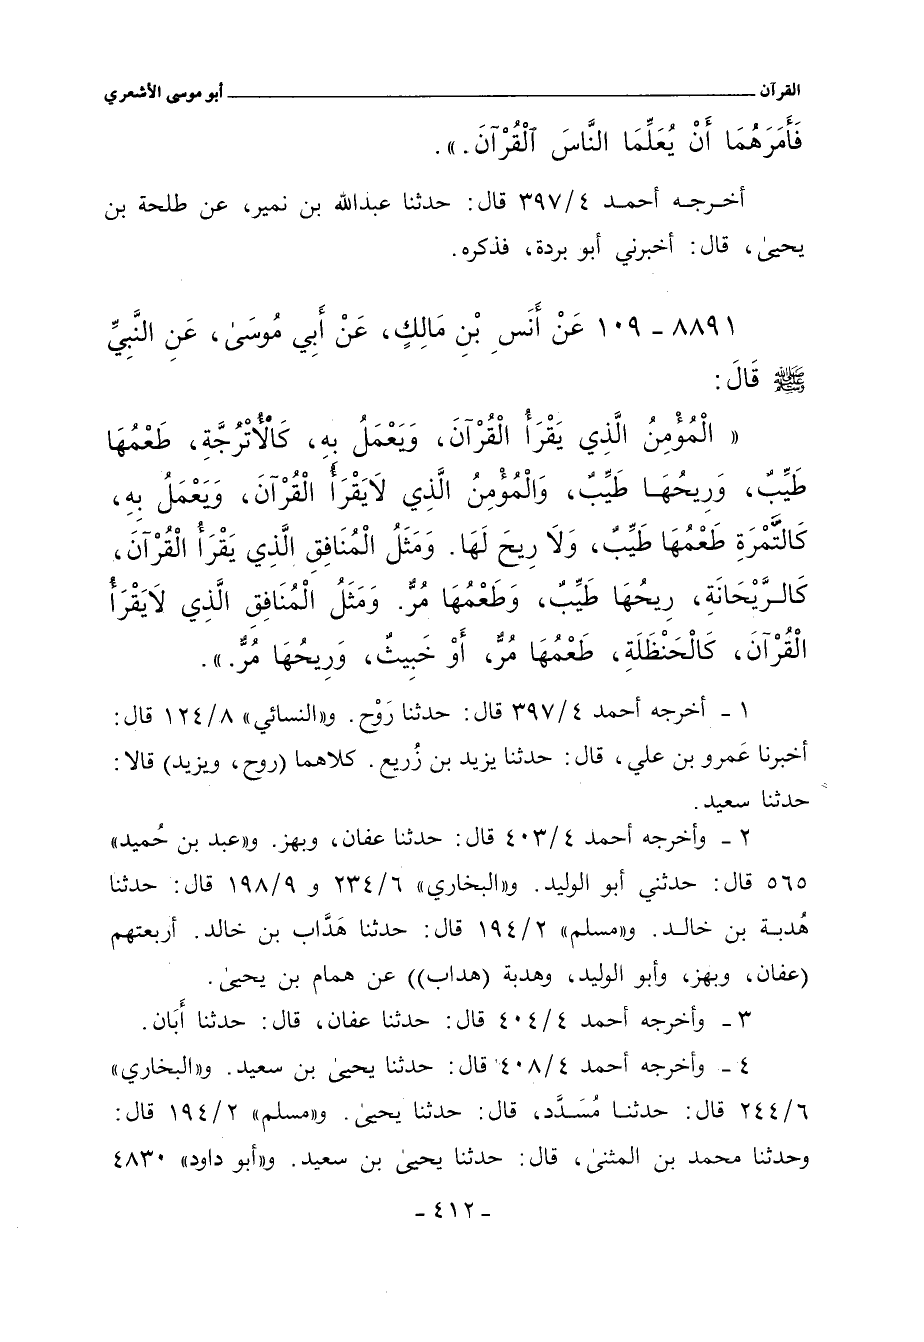 القرآن ــــــــــــــــــــ أبو موسى الأشعري
فَأَمَرَهُمَا أَنْ يُعَلِّمَا النَّاسَ ٱلْقُرْآنَ.».
أخرجه أحمد ٣٩٧/٤ قال: حدثنا عبدالله بن نمير، عن طلحة بن
يحيىٰ، قال: أخبرني أبو بردة، فذكره.
٨٨٩١ ـ ١٠٩ عَنْ أَنَسِ بْنِ مَالِكٍ، عَنْ أَبِي مُوسَىٰ، عَنِ النَّبِيِّ
ﷺ قَالَ:
« الْمُؤْمِنُ الَّذِي يَقْرَأُ الْقُرْآنَ، وَيَعْمَلُ بِهِ، كَالْأُتْرُجَّةِ، طَعْمُهَا
طَيِّبٌ، وَرِيحُهَا طَيِّبٌ، وَالْمُؤْمِنُ الَّذِي لَايَقْرَأُ الْقُرْآنَ، وَيَعْمَلُ بِهِ،
كَالتَّمْرَةِ طَعْمُهَا طَيِّبٌ، وَلَا رِيحَ لَهَا. وَمَثَلُ الْمُنَافِقِ الَّذِي يَقْرَأُ الْقُرْآنَ،
كَالرَّيْحَانَةِ، رِيحُهَا طَيِّبٌ، وَطَعْمُهَا مُرٌّ. وَمَثَلُ الْمُنَافِقِ الَّذِي لَايَقْرَأُ
الْقُرْآنَ، كَالْحَنْظَلَةِ، طَعْمُهَا مُرٌّ، أَوْ خَبِيثٌ، وَرِيحُهَا مُرٌّ.».
١ ـ أخرجه أحمد ٣٩٧/٤ قال: حدثنا رَوْح. و«النسائي» ١٢٤/٨ قال:
أخبرنا عَمرو بن علي، قال: حدثنا يزيد بن زُريع. كلاهما (روح، ويزيد) قالا:
حدثنا سعيد.
٢ ـ وأخرجه أحمد ٤٠٣/٤ قال: حدثنا عفان، وبهز. و«عبد بن حُميد»
٥٦٥ قال: حدثني أبو الوليد. و«البخاري» ٢٣٤/٦ و ١٩٨/٩ قال: حدثنا
هُدبة بن خالد. و«مسلم» ١٩٤/٢ قال: حدثنا هَدَّاب بن خالد. أربعتهم
(عفان، وبهز، وأبو الوليد، وهدبة (هداب)) عن همام بن يحيىٰ.
٣ ـ وأخرجه أحمد ٤٠٤/٤ قال: حدثنا عفان، قال: حدثنا أَبَان.
٤ ـ وأخرجه أحمد ٤٠٨/٤ قال: حدثنا يحيىٰ بن سعيد. و«البخاري»
٢٤٤/٦ قال: حدثنا مُسَدَّد، قال: حدثنا يحيىٰ. و«مسلم» ١٩٤/٢ قال:
وحدثنا محمد بن المثنىٰ، قال: حدثنا يحيىٰ بن سعيد. و«أبو داود» ٤٨٣٠
ـ ٤١٢ ـ